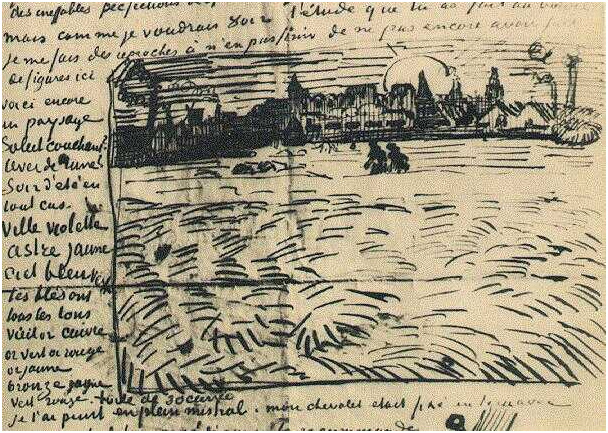 Des ineffables perfections l'étude que tu as
mais comme je voudrais voir
Je me fais des reproches à n'en pas finir de ne pas encore avoir fait
de figures ici
Voici encore
un paysage
Soleil couchant?
lever de lune?
Soir d'eté en
tout cas.
Ville violette
astre jaune
ciel bleu vert
les blés ont
tous les tons
vieil or cuivre
or vert or rouge
or jaune
bronze jaune
vert rouge. toile de 30 carrée
je l'ai peint en plein mistral. mon chevalet etait fixé en terre avec
de